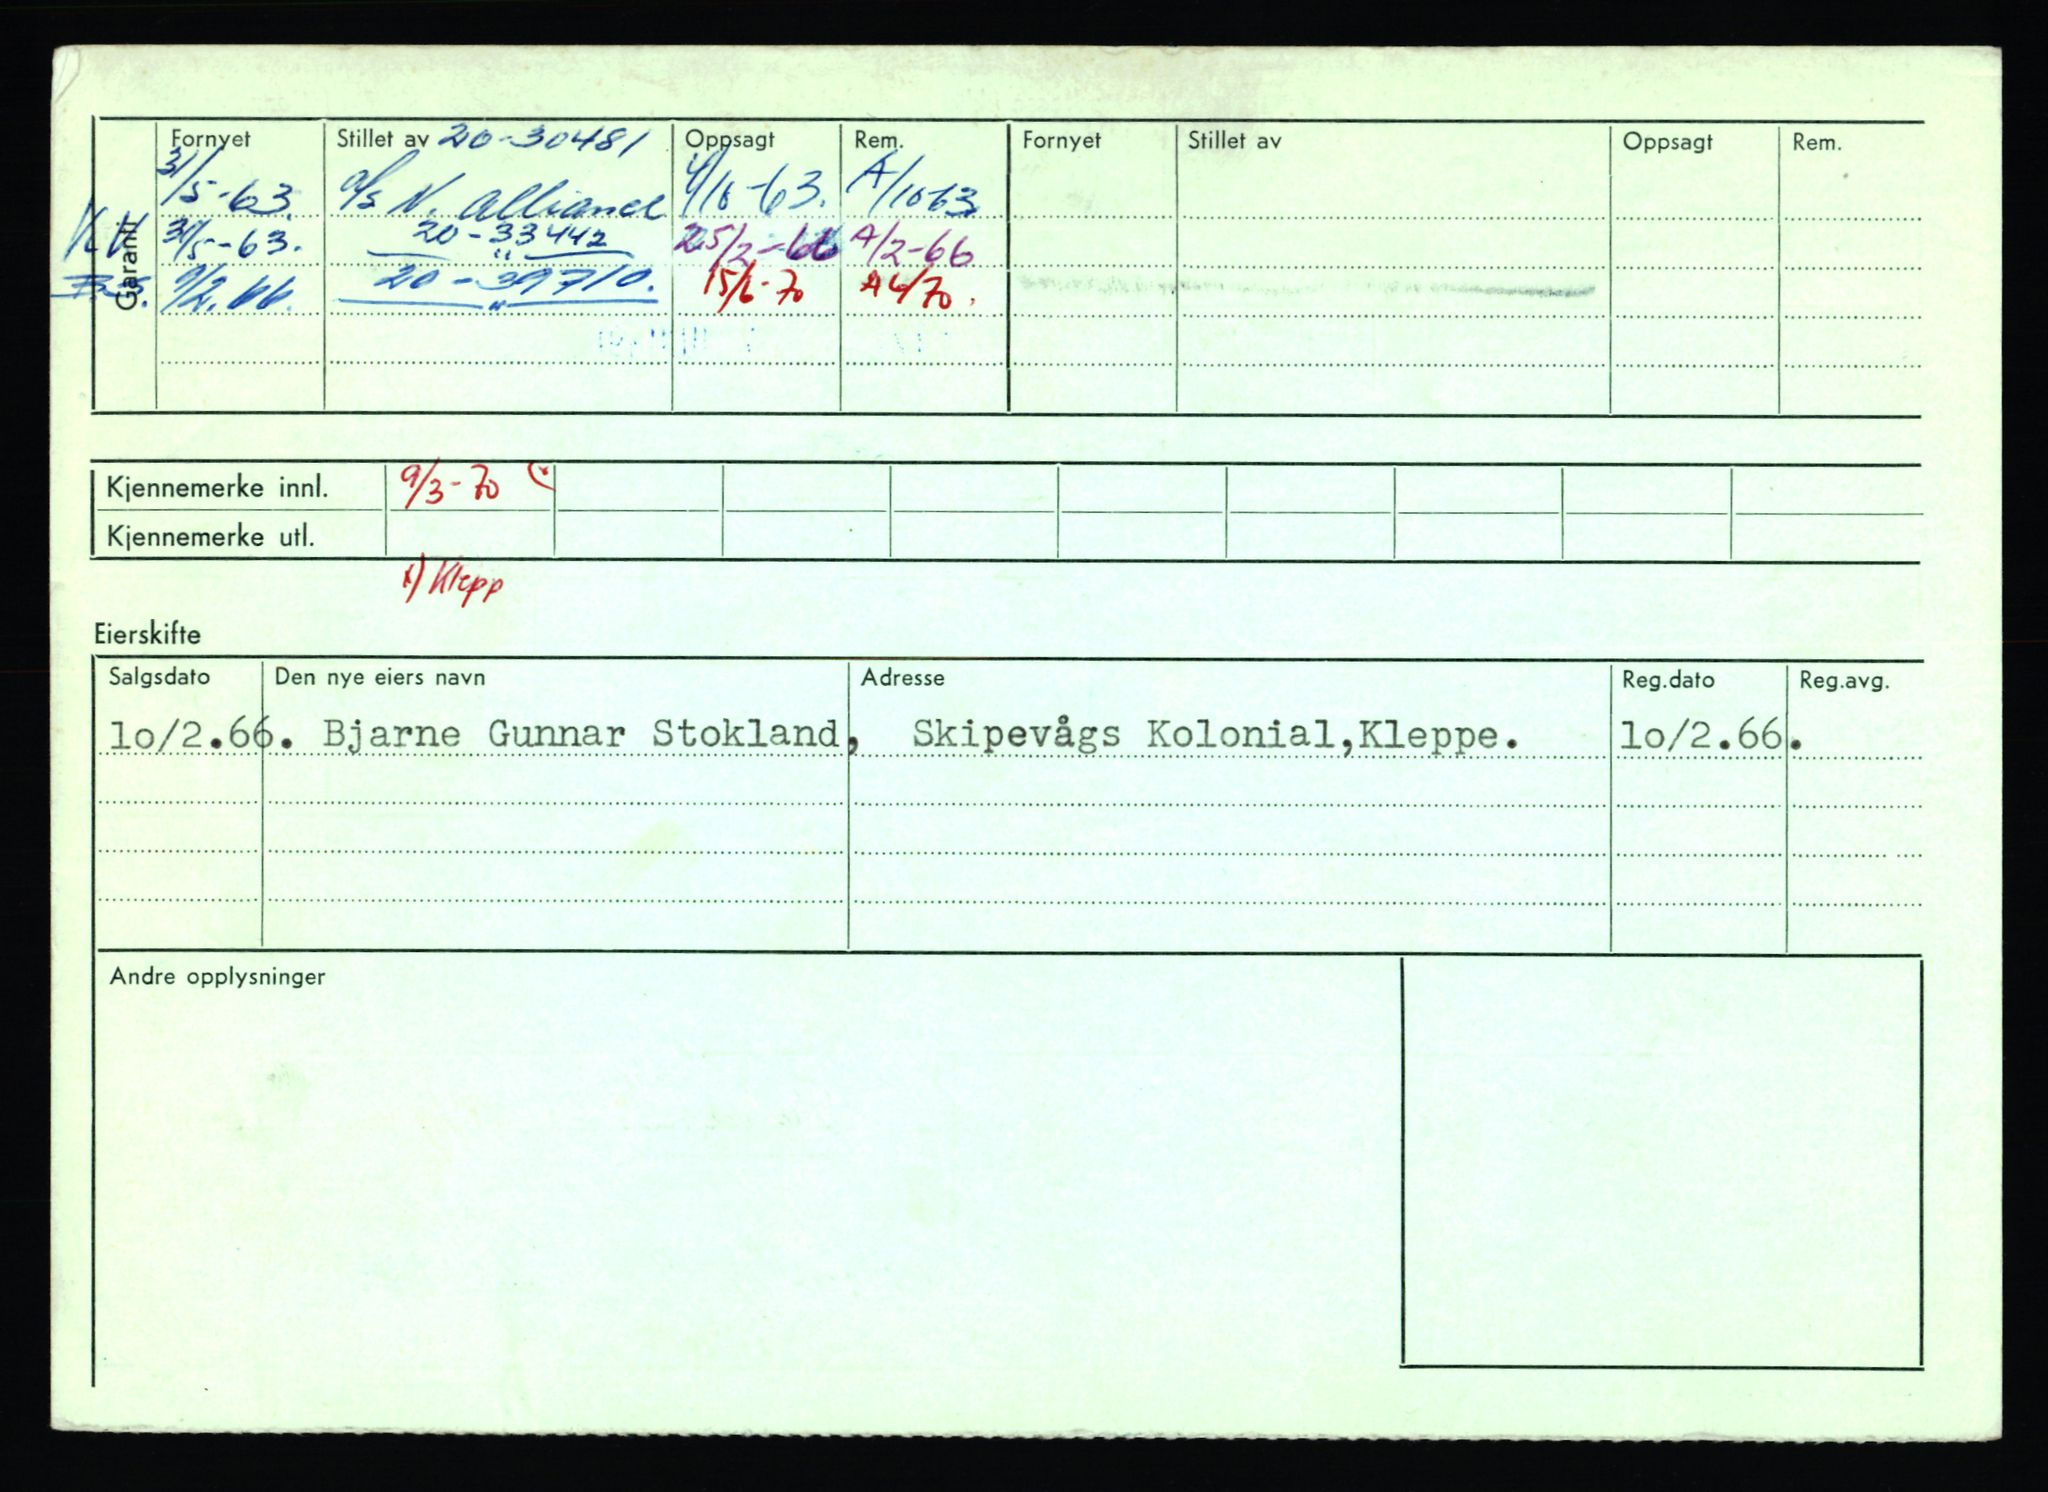 Garanti
Fornyet Stillet av 20-30481 Oppsagt Rem. Fornyet Stillet av Oppsagt Rem.
31/5-63. A/S N. Alliance 4/10-63. A/10-63
31/5-63. 20-33442 25/2-66 A/2-66
9/2.66. 20-39710. 15/6-70 A6/70.
Kjennemerke innl. 9/3-70
Kjennemerke utl.
x) Klepp
Eierskifte
Salgsdato Den nye eiers navn Adresse Reg.dato Reg.avg.
lo/2.66. Bjarne Gunnar Stokland, Skipevågs Kolonial,Kleppe. lo/2.66.
Andre opplysninger